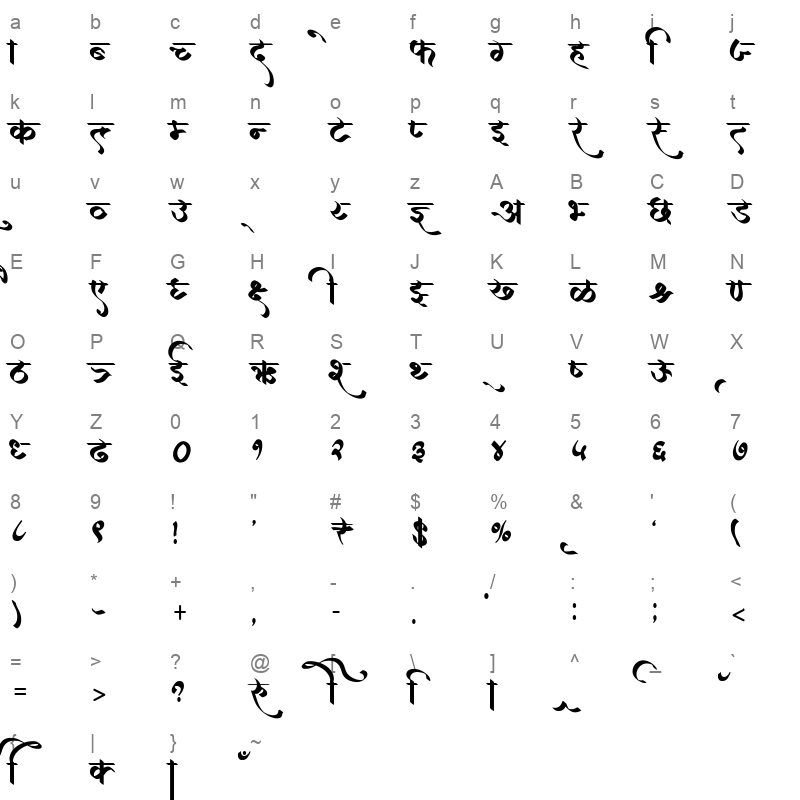 a b c d e f g h i j
ा ब् च् द े फ ग् ह ि ज्
k l m n o p q r s t
क म् न् ट प् इ र
u v w x y z A B C D
ु व् उ ् य् अ भ् छ ड
E F G H I J K L M N
ै ए घ् क्ष् ी ख् ळ श्र ण्
O P Q R S T U V W X
ठ ञ् ई ऋ श् थ् ू ष् ऊ ृ
Y Z 0 1 2 3 4 5 6 7
ध् ढ ० १ २ ३ ४ ५ ६ ७
8 9 ! " # $ % & ' (
८ ९ ! ' $ % ‘ (
) * + , - . / : ; <
) + , - . : ; <
= > ? @ [ \ ] ^ _ `
= > ? ी ि ा
{ | } ~
ि क् ा ँ